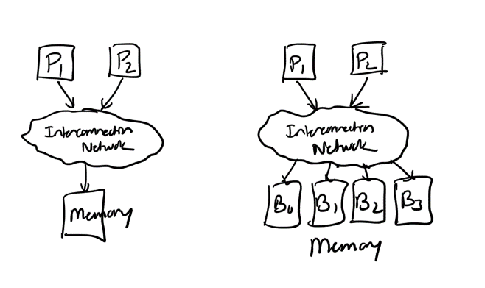 P1 P2
Interconnection
Network
Memory
P1 P2
Interconnection
Network
B0 B1 B2 B3
Memory